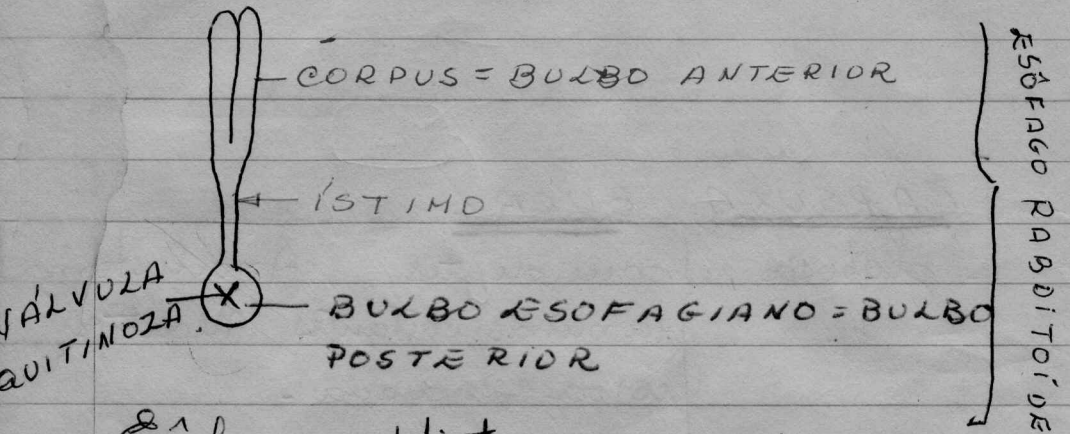 CORPUS = BULBO ANTERIOR
ÍSTIMO
VÁLVULA
QUITINOZA.
BULBO ESOFAGIANO = BULBO
POSTERIOR
ESÔFAGO RABDITOÍDE